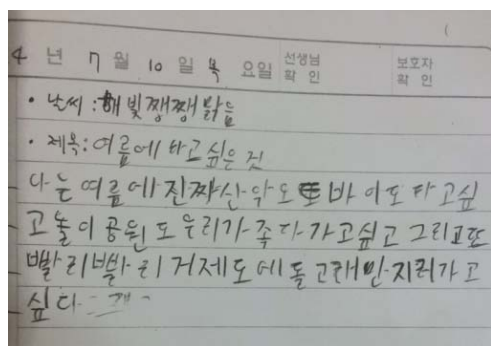 4 년 7 월 10 일 목 요일 선생님 확 인 보호자 확 인
· 날씨 : 해빛쨍쨍맑음
· 제목 : 여름에 타고싶은 것
나는 여름에 진짜산악오토바이도 타고싶
고 놀이공원도 우리가족다가고싶고 그리고또
빨리빨리 거제도에 돌고래만지러가고
싶다